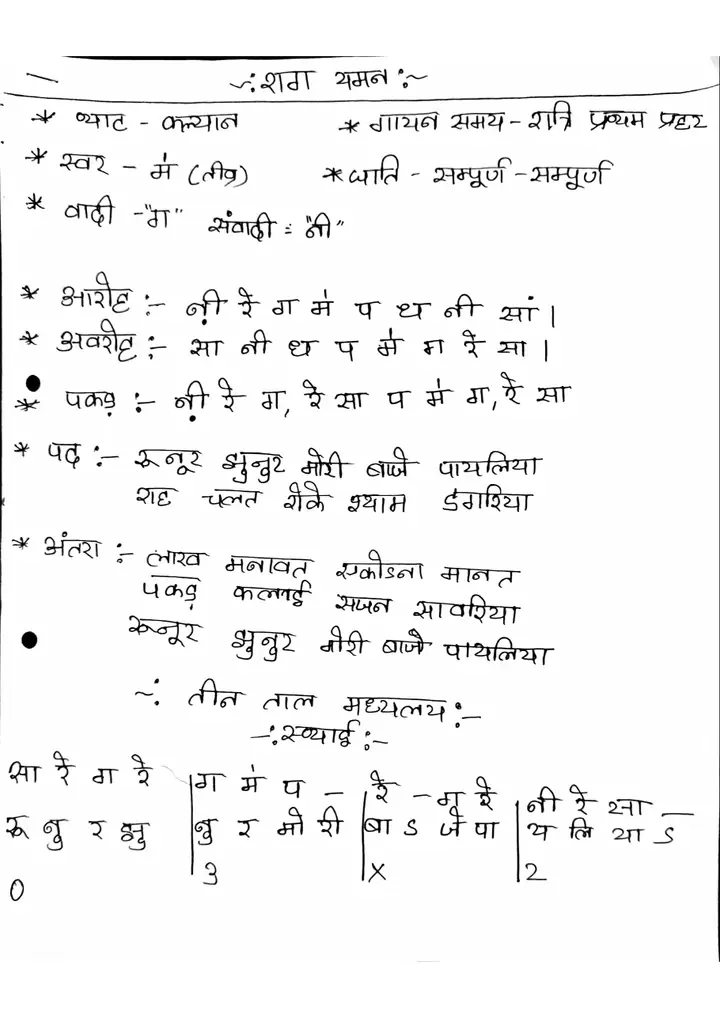 -: राग यमन :-
* थाट - कल्यान * गायन समय - रात्रि प्रथम प्रहर
* स्वर - मं (तीव्र) * जाति - सम्पूर्ण - सम्पूर्ण
* वादी - "ग" संवादी = "नी"
* आरोह :- ऩी रे ग मं प ध नी सां ।
* अवरोह :- सा नी ध प मं ग रे सा ।
* पकड़ :- ऩी रे ग, रे सा प मं ग, रे सा
* पद :- रूनूर झुनुर मोरी बाजे पायलिया
राह चलत रोके श्याम डगरिया
* अंतरा :- लाख मनावत एकोडना मानत
पकड़ कलाई सजन सावरिया
रूनूर झुनुर मोरी बाजे पायलिया
-: तीन ताल मध्यलय :-
-: स्थाई :-
सा रे ग रे | ग मं प - | रे - ग रे | नी रे सा -
रू नु र झु | नु र मो री | बा ऽ जे पा | य लि या ऽ
0 3 X 2